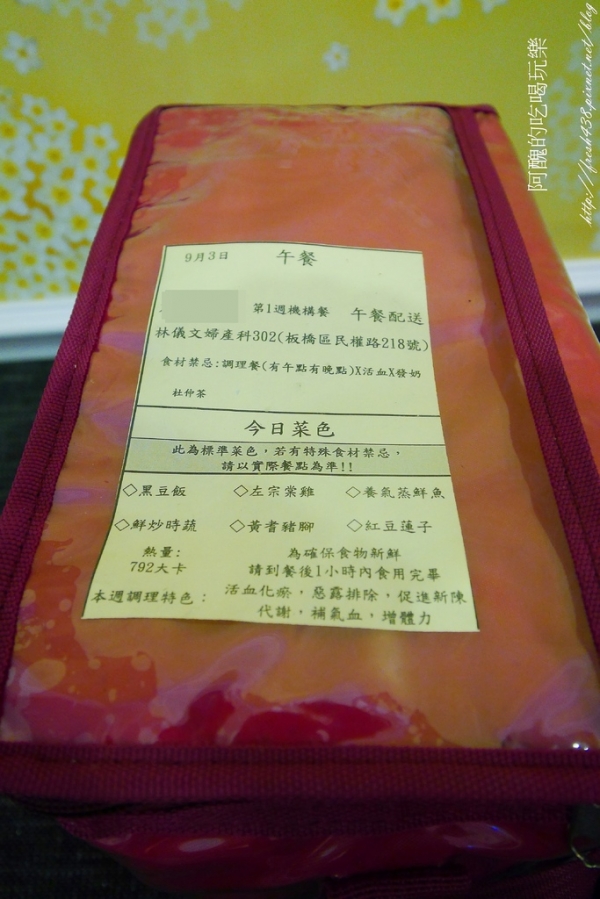 9月3日 午餐
第1週機構餐 午餐配送
林儀文婦產科302(板橋區民權路218號)
食材禁忌:調理餐(有午點有晚點)X活血X發奶
杜仲茶
今日菜色
此為標準菜色，若有特殊食材禁忌，
請以實際餐點為準!!
◇黑豆飯 ◇左宗棠雞 ◇養氣蒸鮮魚
◇鮮炒時蔬 ◇黃耆豬腳 ◇紅豆蓮子
熱量: 為確保食物新鮮
792大卡 請到餐後1小時內食用完畢
本週調理特色: 活血化瘀，惡露排除，促進新陳
代謝，補氣血，增體力
阿醜的吃喝玩樂
http://fresh438.pixnet.net/blog